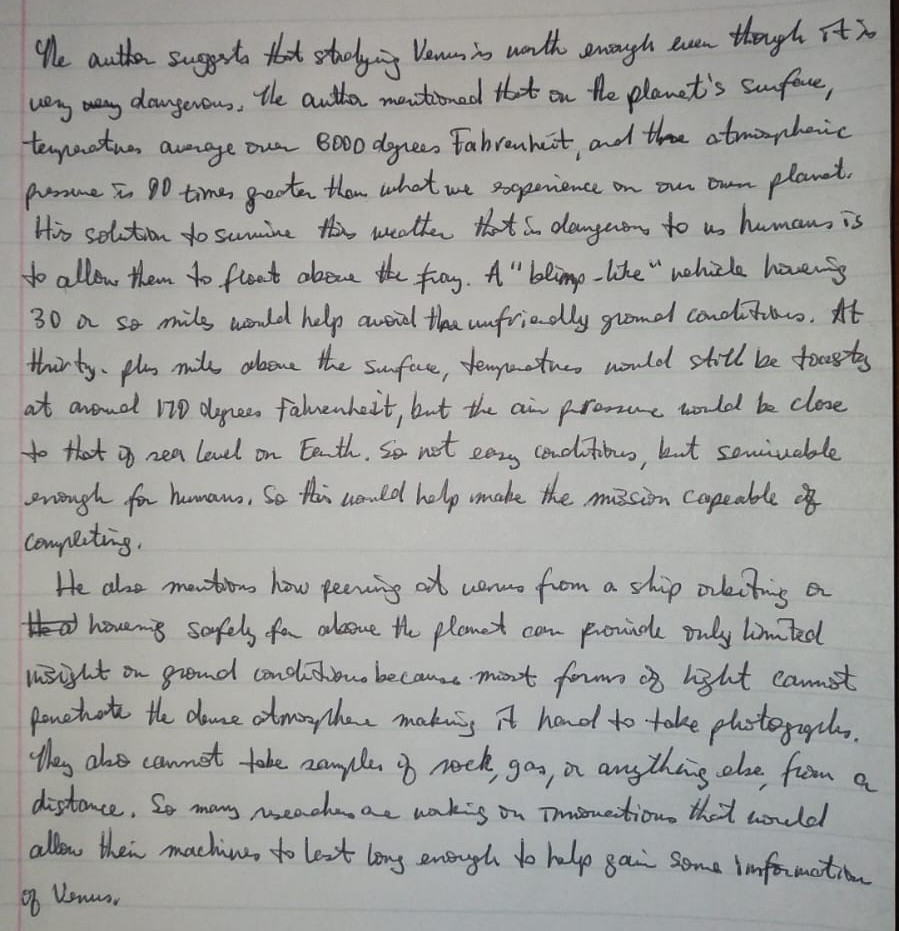 The author suggests that studying Venus is worth enough even though it is
very very dangerous. The author mentioned that on the planet's surface,
temperatures average over 8000 degrees Fahrenheit, and the atmospheric
pressure is 90 times greater than what we experience on our own planet.
His solution to survive this weather that is dangerous to us humans is
to allow them to float above the fray. A "blimp-like" vehicle hovering
30 or so miles would help avoid the unfriendly ground conditions. At
thirty-plus miles above the surface, temperatures would still be toasty
at around 170 degrees Fahrenheit, but the air pressure would be close
to that of sea level on Earth. So not easy conditions, but survivable
enough for humans. So this would help make the mission capeable of
completing.
He also mentions how peering at venus from a ship orbiting or
hovering safely far above the planet can provide only limited
insight on ground conditions because most forms of light cannot
penetrate the dense atmosphere making it hard to take photographs.
They also cannot take samples of rock, gas, or anything else, from a
distance. So many researchers are working on innovations that would
allow their machines to last long enough to help gain some information
of Venus.